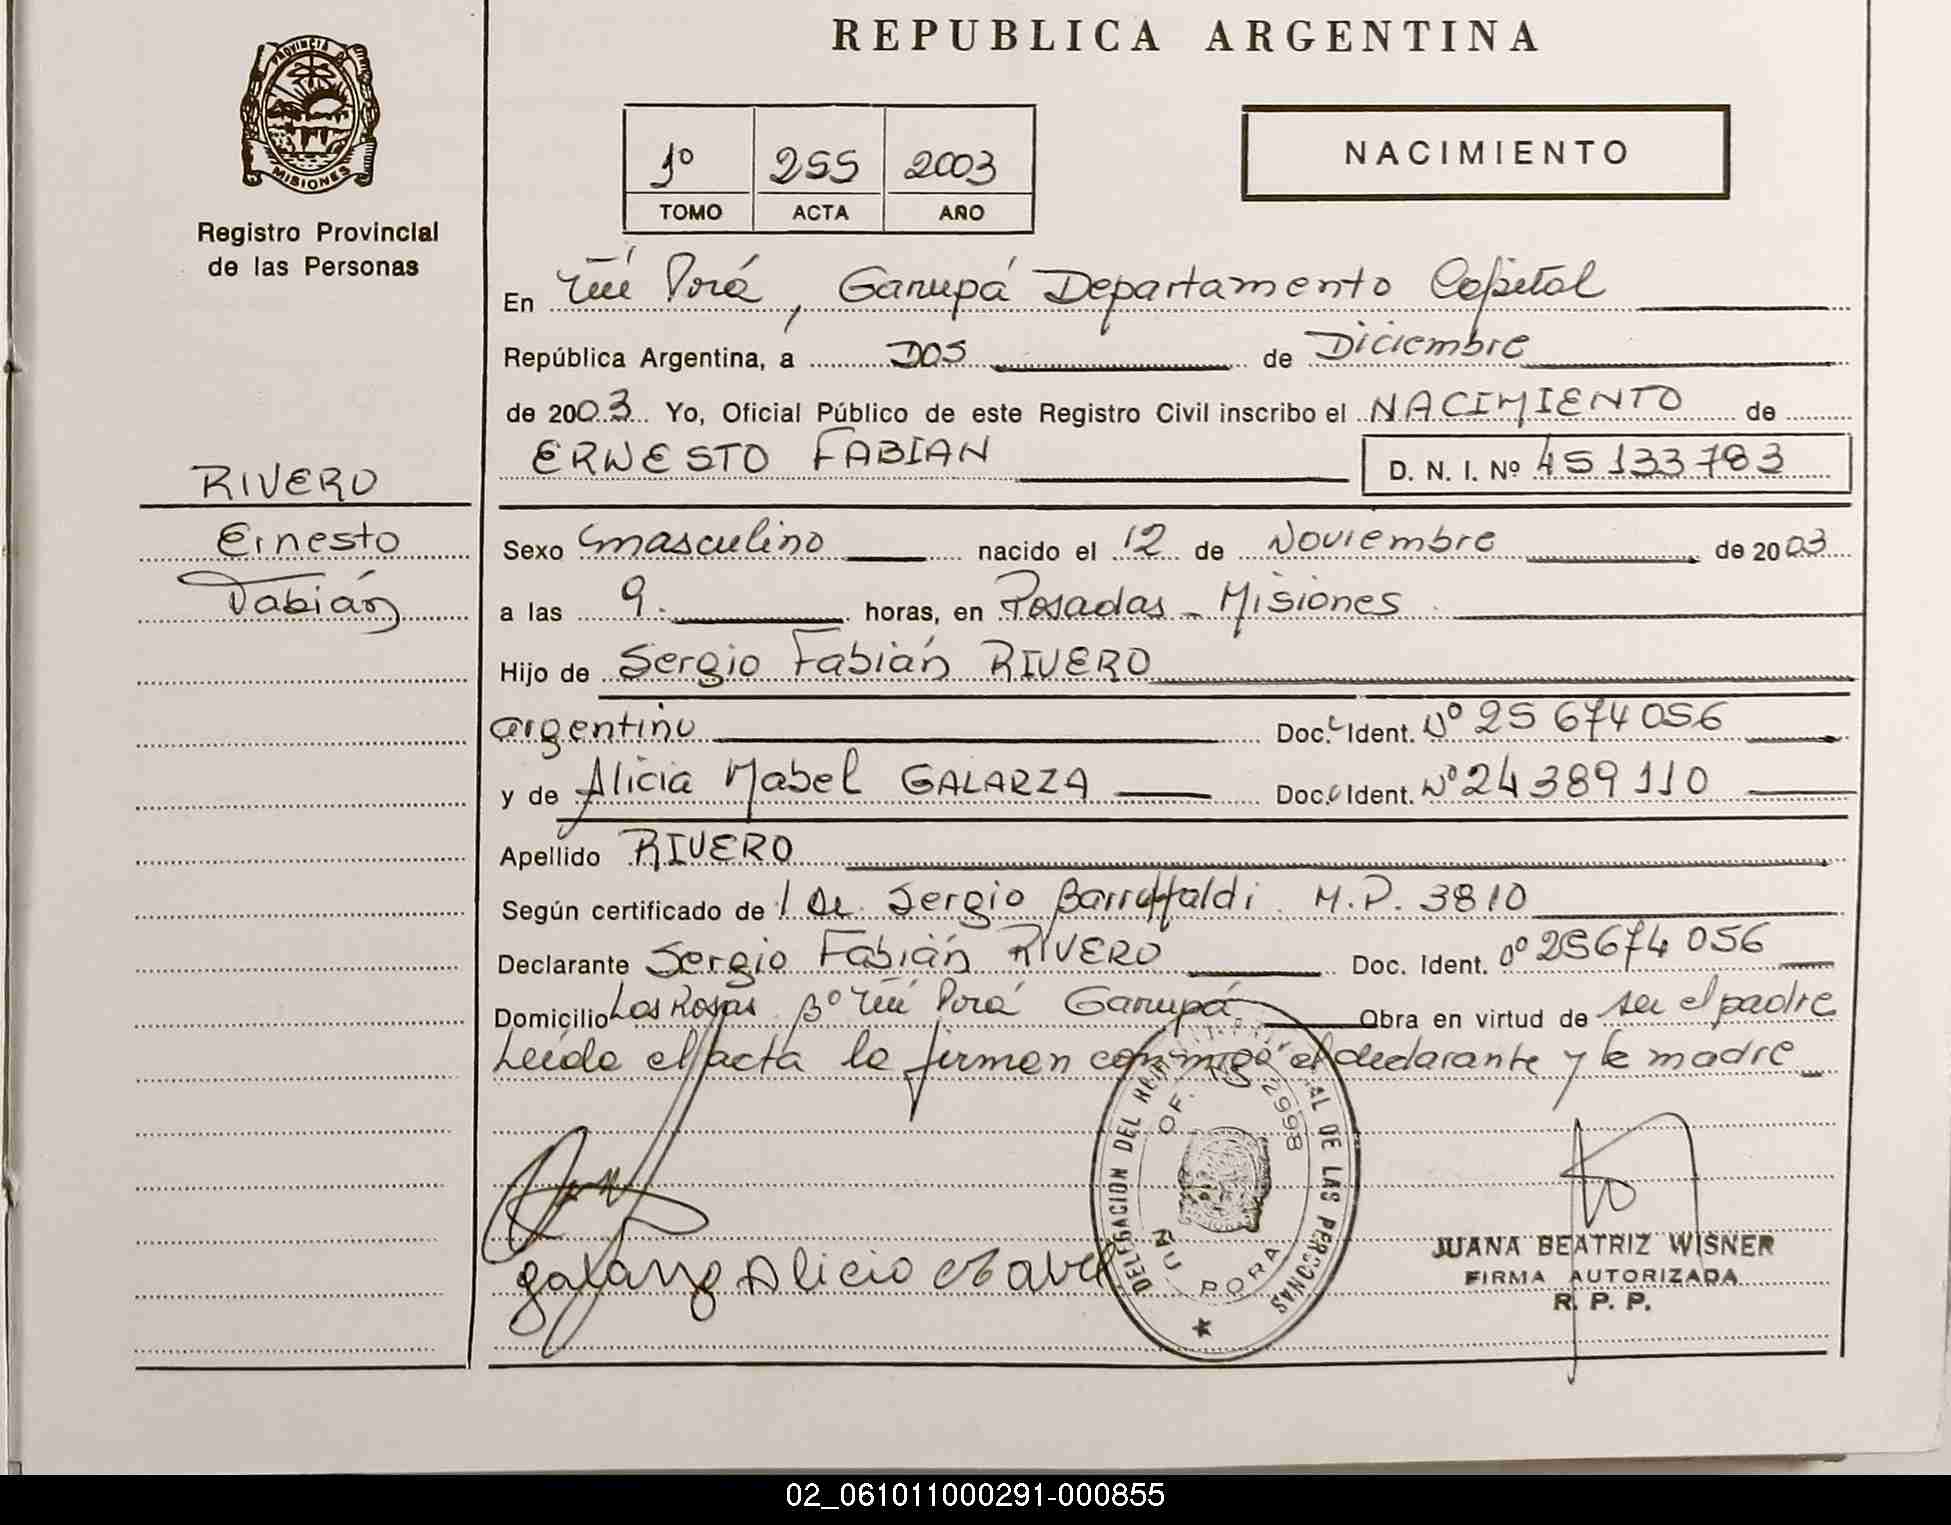 REPUBLICA ARGENTINA
PROVINCIA DE
MISIONES
Registro Provincial
de las Personas
1º 255 2003
TOMO ACTA AÑO
NACIMIENTO
En Ñu Porá, Garupá Departamento Capital
República Argentina, a DOS de Diciembre
de 2003 Yo, Oficial Público de este Registro Civil inscribo el NACIMIENTO de
ERNESTO FABIAN D. N. I. Nº 45133783
RIVERO
Ernesto
Fabián
Sexo masculino nacido el 12 de Noviembre de 2003
a las 9. horas, en Posadas - Misiones
Hijo de Sergio Fabián RIVERO
argentino Doc. Ident. Nº 25 674 056
y de Alicia Mabel GALARZA Doc. Ident. Nº 24 389 110
Apellido RIVERO
Según certificado de Sergio Barruffaldi M.P. 3810
Declarante Sergio Fabián RIVERO Doc. Ident. nº 25674 056
Domicilio Las Rosas Bº Ñu Porá Garupá Obra en virtud de ser el padre
Leída el acta la firman conmigo el declarante y la madre
DELEGACION DEL REG. PROVINCIAL DE LAS PERSONAS
OF. 2998
ÑU PORA
Alicia Mabel
JUANA BEATRIZ WISNER
FIRMA AUTORIZADA
R. P. P.
02_061011000291-000855